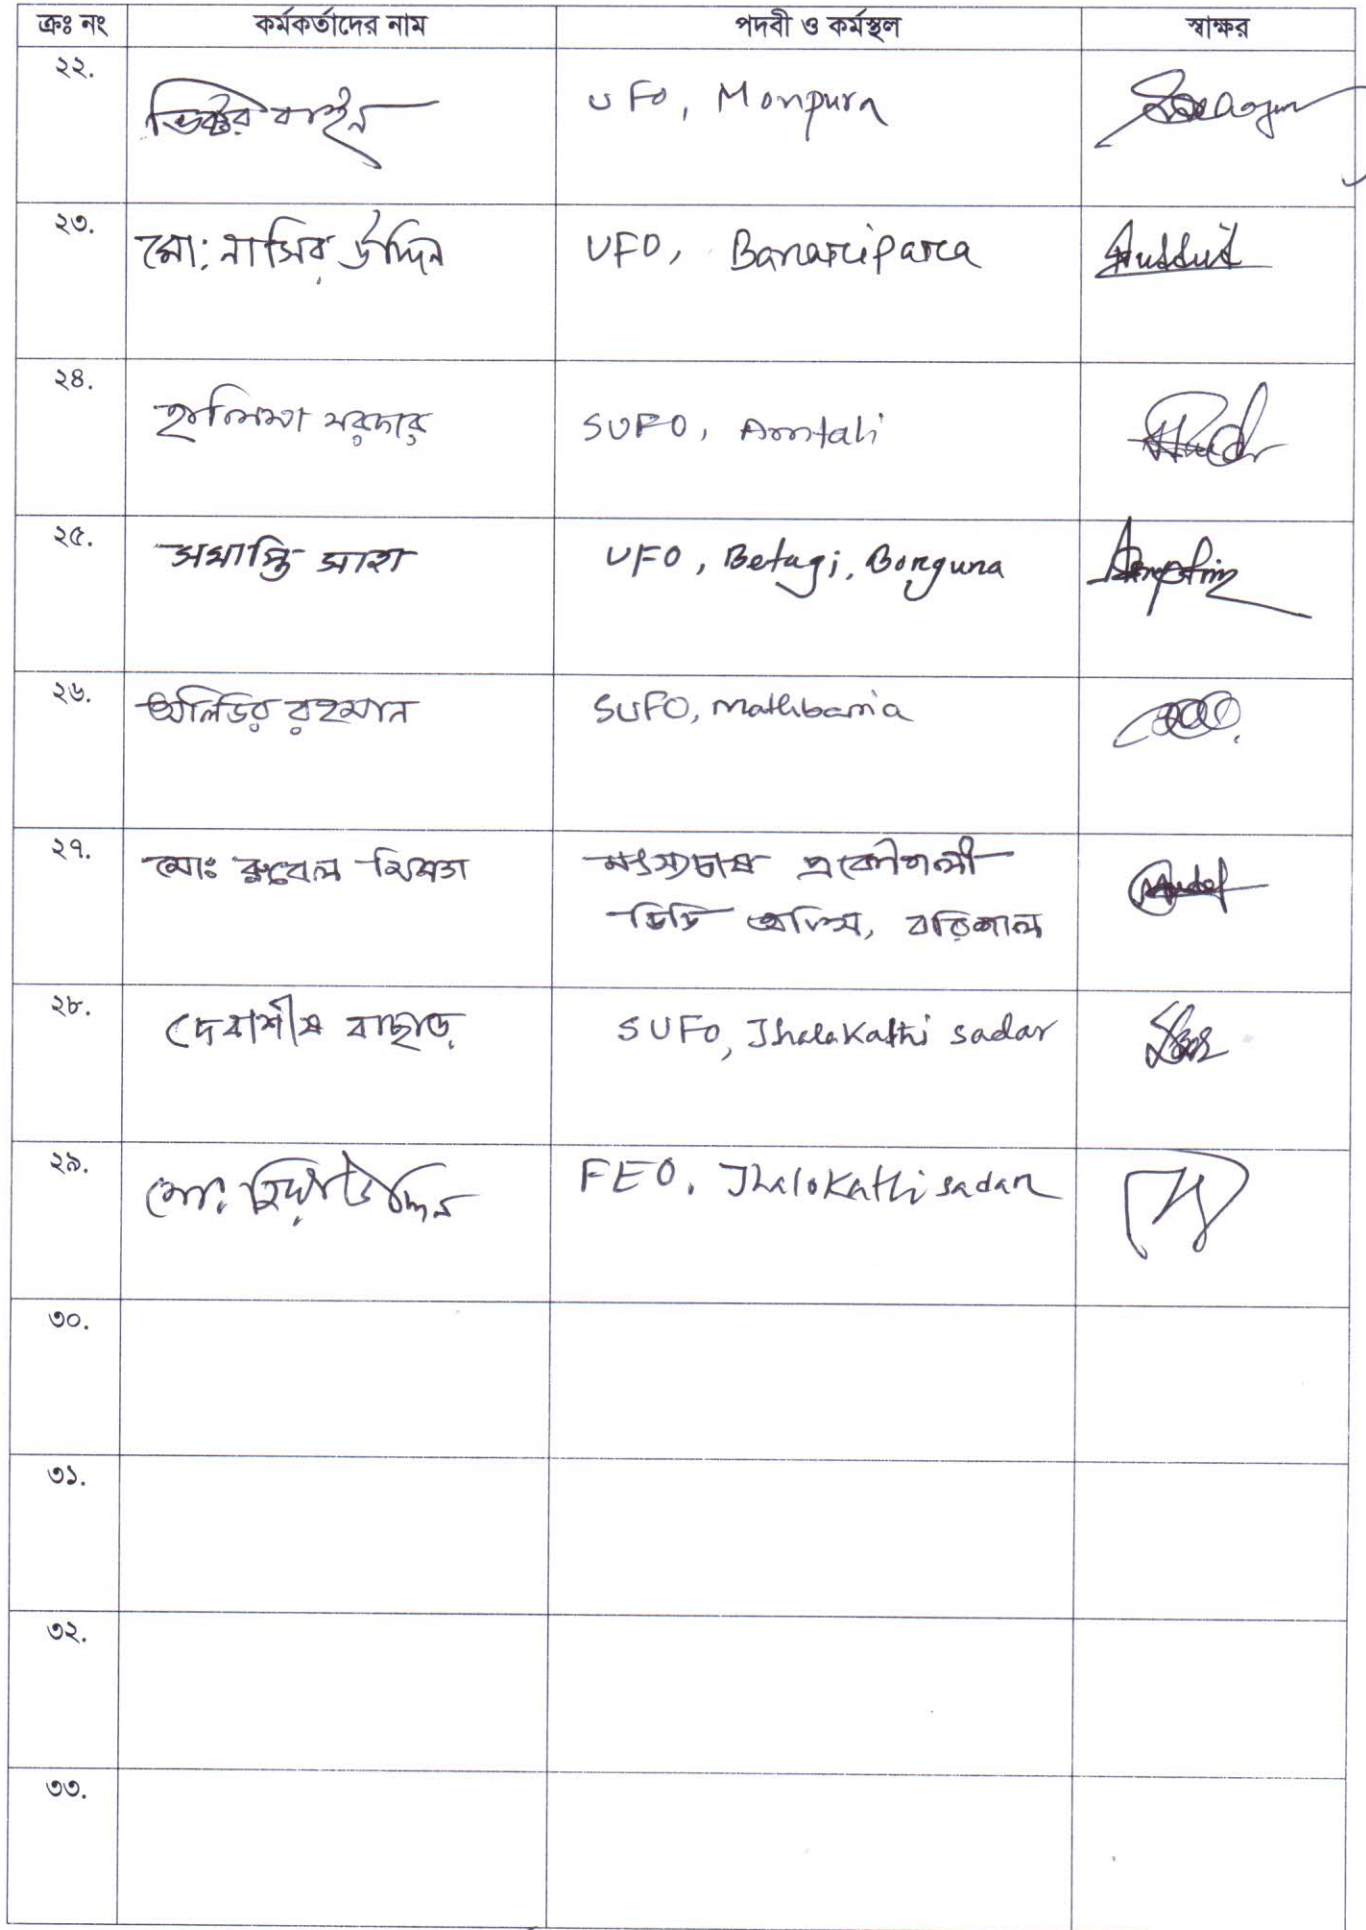 ক্রঃ নং কর্মকর্তাদের নাম পদবী ও কর্মস্থল স্বাক্ষর
২২. ভিক্টর বাইন UFO, Monpura
২৩. মো: নাসির উদ্দিন UFO, Banaripara
২৪. হালিমা সরদার SUFO, Amtali
২৫. সমাপ্তি সাহা UFO, Betagi, Borguna
২৬. অলিউর রহমান SUFO, Mathbaria
২৭. মোঃ রুবেল মিঞা মৎস্যচাষ প্রকৌশলী
ডিডি অফিস, বরিশাল
২৮. দেবাশীষ বাছাড় SUFO, Jhalakathi sadar
২৯. মো: উদ্দিন FEO, Jhalokathi sadar
৩০.
৩১.
৩২.
৩৩.